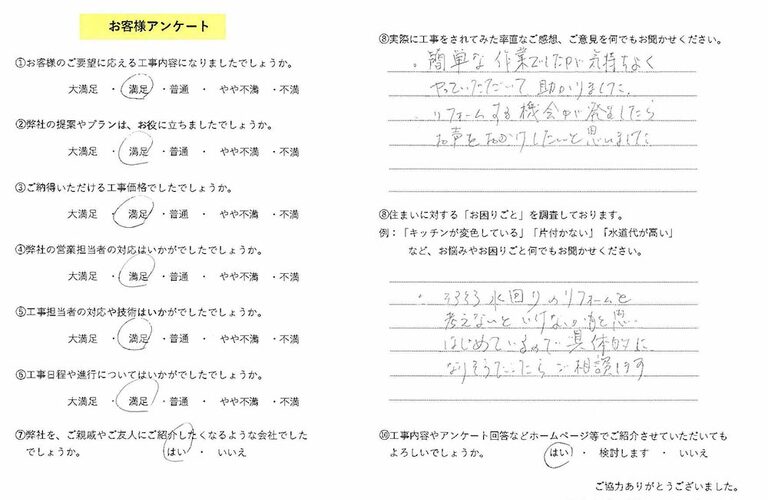 お客様アンケート
①お客様のご要望に応える工事内容になりましたでしょうか。
大満足 ・ 満足 ・普通 ・ やや不満 ・不満
②弊社の提案やプランは、お役に立ちましたでしょうか。
大満足 ・ 満足 ・普通 ・ やや不満 ・不満
③ご納得いただける工事価格でしたでしょうか。
大満足 ・ 満足 ・普通 ・ やや不満 ・不満
④弊社の営業担当者の対応はいかがでしたでしょうか。
大満足 ・ 満足 ・普通 ・ やや不満 ・不満
⑤工事担当者の対応や技術はいかがでしたでしょうか。
大満足 ・ 満足 ・普通 ・ やや不満 ・不満
⑥工事日程や進行についてはいかがでしたでしょうか。
大満足 ・ 満足 ・普通 ・ やや不満 ・不満
⑦弊社を、ご親戚やご友人にご紹介したくなるような会社でした
でしょうか。 はい ・ いいえ
⑧実際に工事をされてみた率直なご感想、ご意見を何でもお聞かせください。
・簡単な作業でしたが気持ちよく
やっていただいて助かりました。
・リフォームする機会が発生したら
お声をおかけしたいと思いました
⑧住まいに対する「お困りごと」を調査しております。
例：「キッチンが変色している」「片付かない」「水道代が高い」
など、お悩みやお困りごと何でもお聞かせください。
・そろそろ水回りのリフォームを
考えないといけないかもと思い
はじめているので具体的に
なりそうだったらご相談します
⑩工事内容やアンケート回答などホームページ等でご紹介させていただいても
よろしいでしょうか。 はい ・ 検討します ・ いいえ
ご協力ありがとうございました。